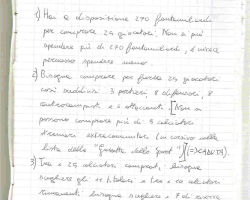 1) Hai a disposizione 270 fantamiliardi
per comprare 25 giocatori. Non si può
spendere più di 270 fantamiliardi, è invece
possono spendere meno.
2) Bisogna comprare per forza 25 giocatori
così suddivisi: 3 portieri, 8 difensori, 8
centrocampisti e 6 attaccanti. [Non si
possono comprare più di 5 calciatori
extracomunitari (in corsivo nella
lista della "Gazzetta dello Sport")] (=> SCADUTA).
3) Tra i 25 calciatori comprati, bisogna
scegliere gli 11 titolari e tra i
rimanenti bisogna scegliere i 7 di riserva